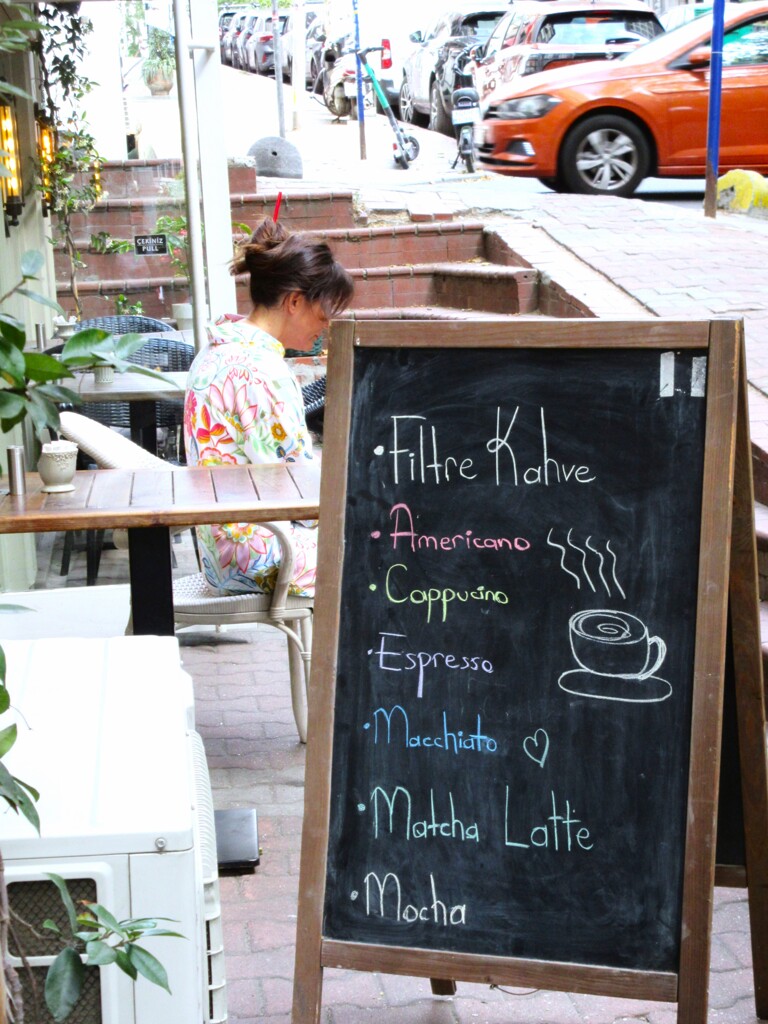 ÇEKİNİZ
PULL
• Filtre Kahve
• Americano
• Cappucino
• Espresso
• Macchiato
• Matcha Latte
• Mocha